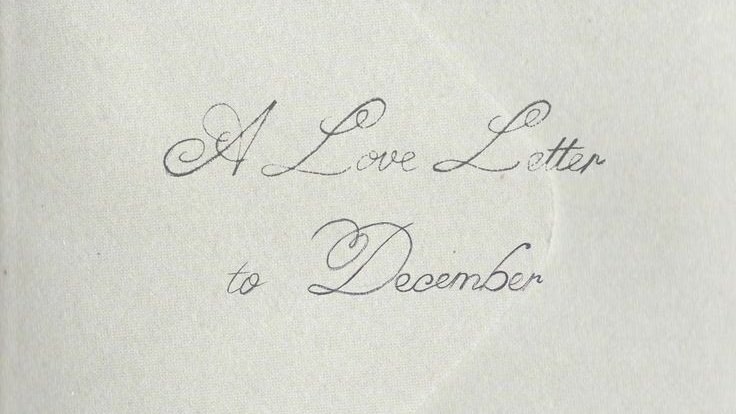 A Love Letter
to December